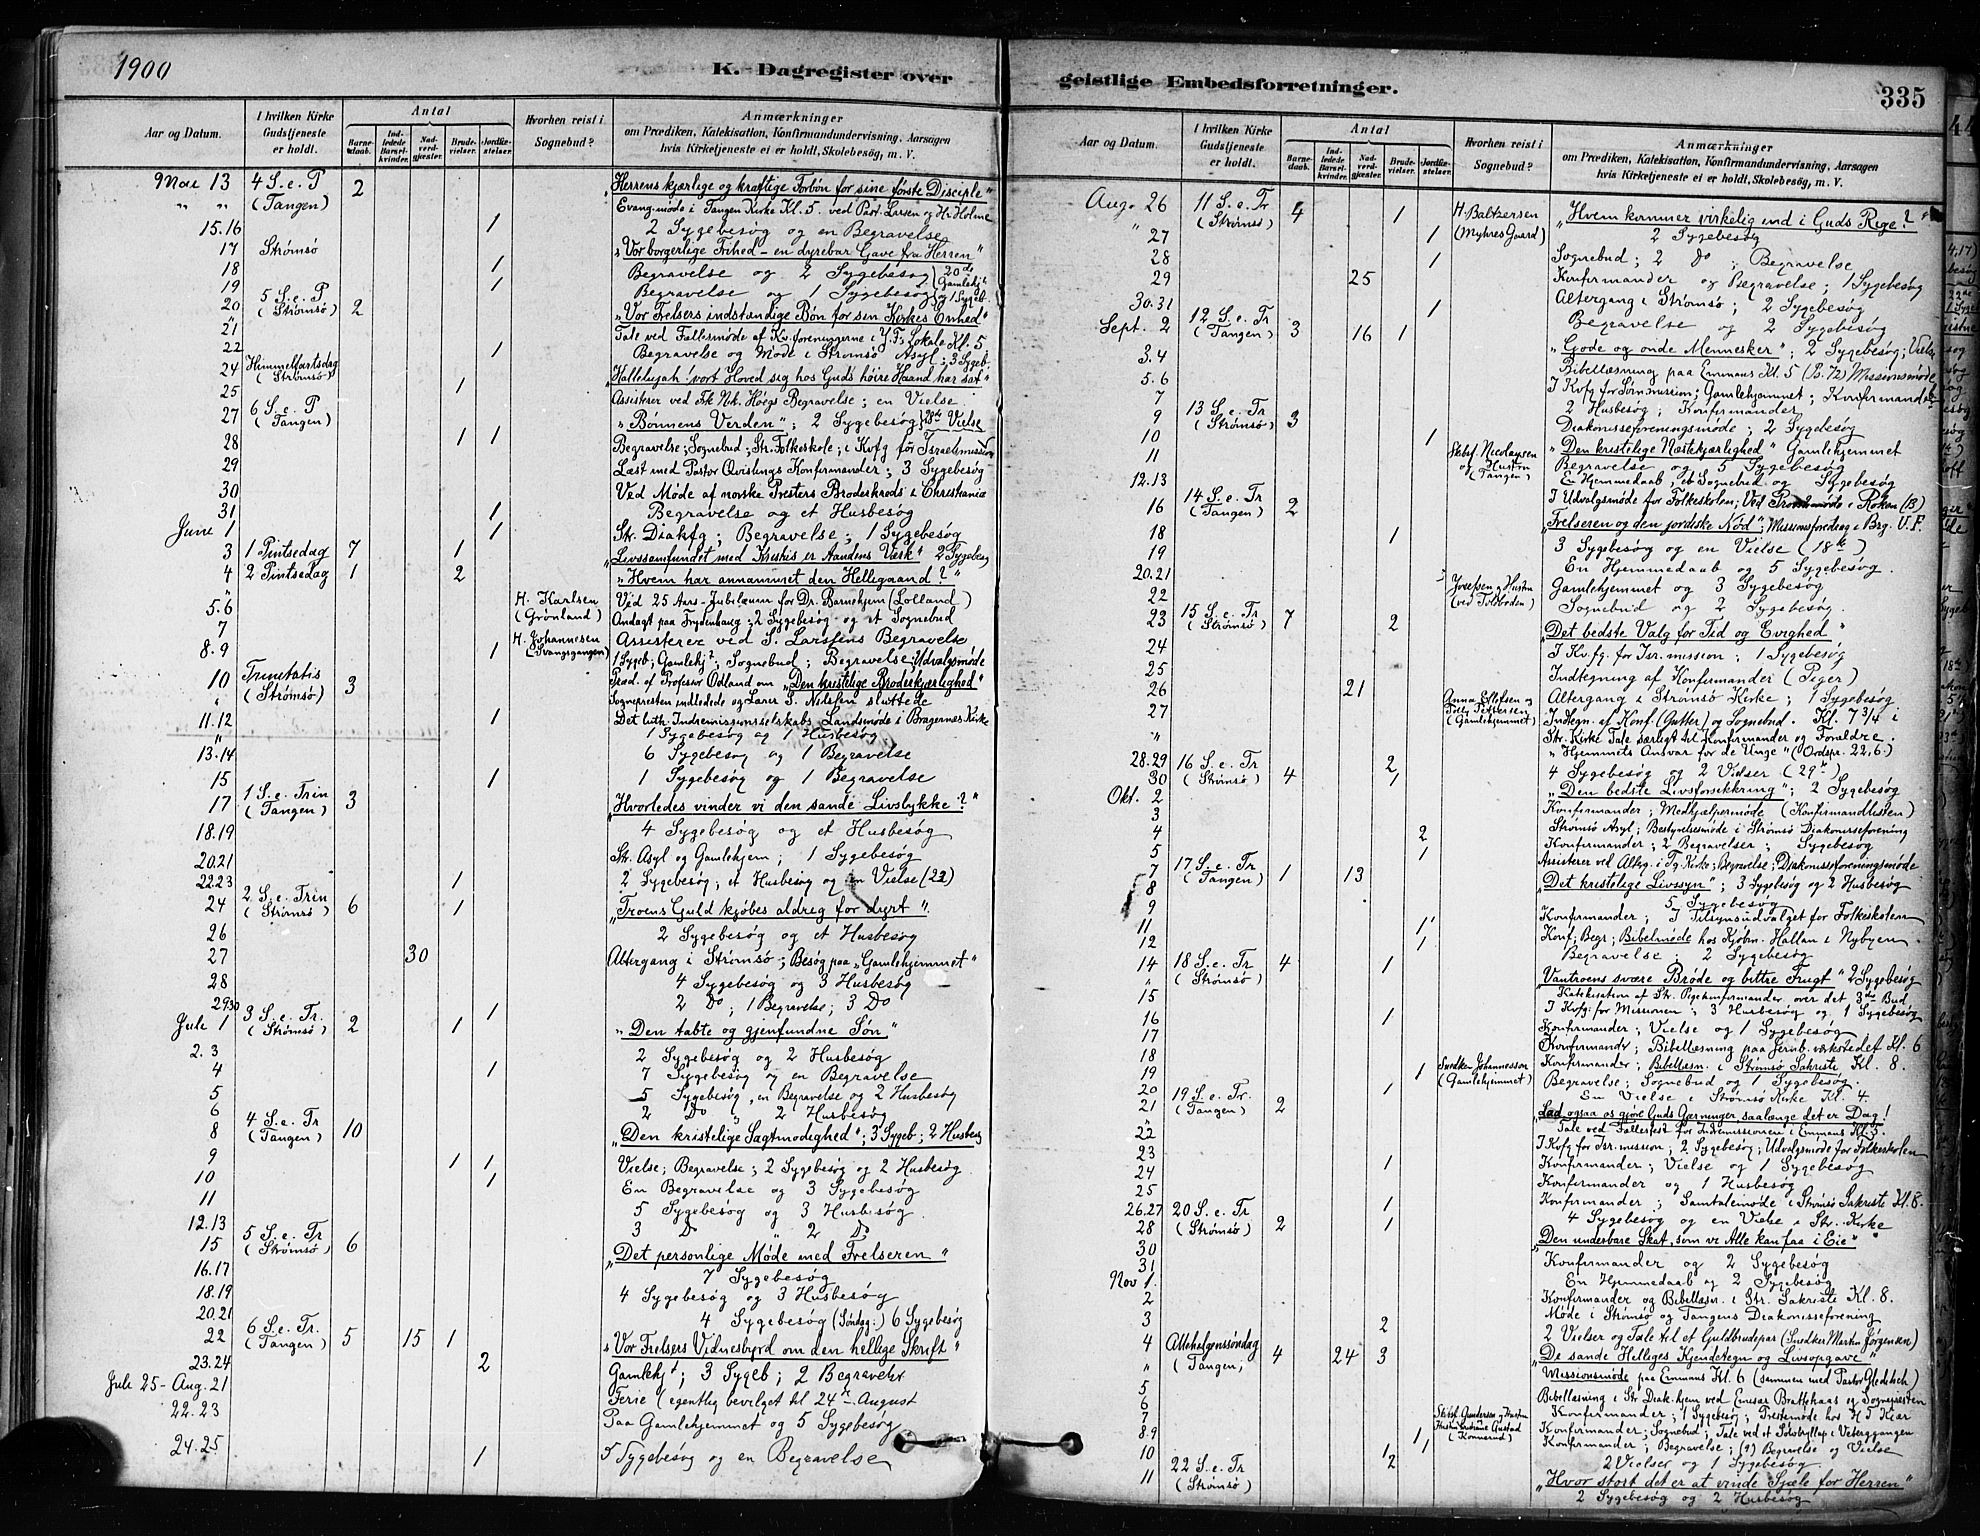 1900
K. Dagregister over
Aar og Datum.
I hvilken Kirke Gudstjeneste er holdt.
Antal
Barne-daab.
Ind-ledede Barsel-kvinder.
Nad-verd-gjester.
Brude-vielser.
Jordfæ-stelser.
Hvorhen reist i Sognebud?
Anmærkninger
om Prædiken, Katekisation, Konfirmandundervisning, Aarsagen
hvis Kirketjeneste ei er holdt, Skolebesøg, m. V.
Mai 13 4 S. e. P 2 „Herrens kjærlige og kraftige Forbøn for sine første Disciple“
„ „ (Tangen) Evang.møde i Tangen Kirke Kl. 5. ved Past. Larsen og Hr Holme
15.16 1 2 Sygebesøg og en Begravelse
17 Strømsø „Vor borgerlige Frihed - en dyrebar Gave fra Herren“
18 1 Begravelse og 2 Sygebesøg
19 1 Begravelse og 1 Sygebesøg
20 5 S. e. P (Strømsø) 2 „Vor Frelsers indstændige Bøn for sin Kirkes Enhed“
21 Tale ved Fællesmøde af Kv.foreningerne i J. F.s Lokale Kl. 5
22 1 Begravelse og Møde i Strømsø Asyl; 3 Sygeb.
24 Himmelfartsdag (Strømsø) „Hallelujah! vort Hoved sig hos Guds høire Haand har sat“
25 1 Assisterer ved Fk Nik. Høegs Begravelse; en Vielse.
27 6 S. e. P (Tangen) „Bønnens Verden“; 2 Sygebesøg 28de Vielse
28 1 1 Begravelse; Sognebud; Str. Folkeskole; i Kvfg for Israelsmission
29 Læst med Pastor Qvislings Konfirmander; 3 Sygebesøg
30 Ved Møde af norske Presters Broderkreds i Christiania
31 1 Begravelse og et Husbesøg
Juni 1 1 Str. Diakfg; Begravelse; 1 Sygebesøg
3 1 Pintsedag 7 1 „Livssamfundet med Kristus er Aandens Værk“ 2 Sygebesøg
4 2 Pintsedag 1 2 „Hvem har annammet den Helligaand?“
„ H. Karlsen Ved 25 Aars-Jubilæum for Dr. Barnehjem (Lolland)
5.6 (Grønland) Andagt paa Frydenhaug; 2 Sygebesøg og et Sognebud
7 H. Johannesen Assisterer ved S. Larsens Begravelse
8.9 1 (Svangsgangen) 1 Sygeb; Gamlehjt; Sognebud; Begravelse; Udvalgsmøde
10 Trinitatis (Strømsø) 3 Præd. af Profesor Odland om „Den kristelige Broderkjærlighed“
„ Sognepresten indledede og Lærer S. Nilssen sluttede
11.12 1 Det luth. Indremissionsselskabs Landsmøde i Bragernæs Kirke
„ 1 Sygebesøg og 1 Husbesøg
13.14 6 Sygebesøg og 1 Begravelse
15 1 1 Sygebesøg og 1 Begravelse
17 1 S. e. Trin (Tangen) 3 „Hvorledes vinder vi den sande Livslykke?“
18.19 4 Sygebesøg og et Husbesøg
20.21 Str. Asyl og Gamlehjem; 1 Sygebesøg
22.23 1 2 Sygebesøg; et Husbesøg og en Vielse (23)
24 2 S. e. Trin (Strømsø) 6 1 „Troens Guld kjøbes aldrig for dyrt“.
26 2 Sygebesøg og et Husbesøg
27 30 Altergang i Strømsø; Besøg paa „Gamlehjemmet“
28 4 Sygebesøg og 3 Husbesøg
29.30 1 2 Do; 1 Begravelse; 3 Do
Juli 1 3 S. e. Tr. (Strømsø) 2 1 „Den tabte og gjenfundne Søn“
2.3 2 Sygebesøg og 2 Husbesøg
4 1 7 Sygebesøg og en Begravelse
5 5 Sygebesøg, en Begravelse og 2 Husbesøg
6 2 Do „ 2 Husbesøg
8 4 S. e. Tr (Tangen) 10 „Den kristelige Sagtmodighed“; 3 Sygeb; 2 Husbesøg
9 1 1 Vielse; Begravelse; 2 Sygebesøg og 2 Husbesøg.
10 1 En Begravelse og 3 Sygebesøg
11 5 Sygebesøg og 3 Husbesøg.
12.13 3 Do „ 2 Do
15 5 S. e. Tr (Strømsø) 6 „Det personlige Møde med Frelseren“
16.17 7 Sygebesøg
18.19 4 Sygebesøg og 3 Husbesøg
20.21 4 Sygebesøg (Søndag:) 6 Sygebesøg
22 6 S. e. Tr. (Tangen) 5 15 1 „Vor Frelsers Vidnesbyrd om den hellige Skrift“
23.24 2 Gamlehjt; 3 Sygeb; 2 Begravelser
Juli 25 - Aug. 21 Ferie (egentlig bevilget til 24de August
22.23 Paa Gamlehjemmet og 5 Sygebesøg
24.25 1 5 Sygebesøg og en Begravelse
geistlige Embedsforretninger.
335
Aar og Datum.
I hvilken Kirke Gudstjeneste er holdt.
Antal
Barne-daab.
Ind-ledede Barsel-kvinder.
Nad-verd-gjester.
Brude-vielser.
Jordfæ-stelser.
Hvorhen reist i Sognebud?
Anmærkninger
om Prædiken, Katekisation, Konfirmandundervisning, Aarsagen
hvis Kirketjeneste ei er holdt, Skolebesøg, m. V.
Aug. 26 11 S. e. Tr (Strømsø) 4 1 H. Baltzersen „Hvem kommer virkelig ind i Guds Rige?“
„ (Myhres Gaard) 2 Sygebesøg
27 1 Sognebud; 2 Do; Begravelse
28 1 Konfirmander og Begravelse; 1 Sygebesøg
29 25 Altergang i Strømsø; 2 Sygebesøg
30.31 1 Begravelse og 2 Sygebesøg
Sept. 2 12 S. e. Tr (Tangen) 3 16 1 „Gode og onde Mennesker“; 2 Sygebesøg; Vielse
3.4 Bibellæsning paa Emmaus Kl. 5 (B. 72) Missionsmøde
5.6 I Kvfg for Sømmission; Gamlehjemmet; Konfirmander
7 2 Husbesøg; Konfirmander
9 13 S. e. Tr (Strømsø) 3 Diakonisseforeningsmøde; 2 Sygebesøg
10 1 „Den kristelige Næstekjærlighed“ Gamlehjemmet
11 Nicolaysen og Hustru (Tangen) Begravelse og 5 Sygebesøg
12.13 En Hjemmedaab, et Sognebud og Sygebesøg
16 14 S. e. Tr (Tangen) 2 I Udvalgsmøde for Folkeskolen; Ved Provstmøde i Røken (B)
„Frelseren og den jordiske Nød“; Missionsforedrag i Brg. U.F.
18 1 3 Sygebesøg og en Vielse (18de)
19 En Hjemmedaab og 5 Sygebesøg.
20.21 Josefsen og Hustru Gamlehjemmet og 3 Sygebesøg
22 (ved Toldboden) Sognebud og 2 Sygebesøg.
23 15 S. e. Tr (Strømsø) 7 2 „Det bedste Valg for Tid og Evighed“
24 I Kvfg. for Isr. mission; 1 Sygebesøg
25 Indtegning af Konfirmander (Piger)
26 21 Anna Ellefsen og Altergang i Strømsø Kirke; 1 Sygebesøg
27 Pettersen (Gamlehjemmet) Indtegn. af Konf. (Gutter) og Sognebud. Kl. 7 3/4 i
„ Str. Kirke Tale særligt til Konfirmander og Forældre.
„Hjemmets Ansvar for de Unge“ (Ordspr. 22,6.)
28.29 16 S. e. Tr 2 4 Sygebesøg og 2 Vielser (29de)
30 (Strømsø) 4 1 „Den bedste Livsforsikkring“; 2 Sygebesøg
Okt. 2 Konfirmander; Medhjælpermøde (Konfirmandlisten)
3 Strømsø Asyl; Bestyrelsesmøde i Strømsø Diakonisseforening
4 2 Konfirmander; 2 Begravelser; Sygebesøg
5 1 Assisterer ved Alterg. i Tg. Kirke; Begravelse; Diakonisseforeningsmøde
7 17 S. e. Tr (Tangen) 1 13 „Det kristelige Livssyn“; 3 Sygebesøg og 2 Husbesøg
8 5 Sygebesøg
9 Konfirmander; I Tilsynsudvalget for Folkeskolen
11 1 Konf; Begr; Bibelmøde hos Kjøbm. Hallan i Nybyen.
12 1 Begravelse; 2 Sygebesøg
14 18 S. e. Tr (Strømsø) 4 1 „Vantroens svære Brøde og bittre Frugt“ 2 Sygebesøg
„ Katekisation af Str. Pigekonfirmander over det 3die Bud
15 I Kvfg. for Missionen; 3 Husbesøg og 1 Sygebesøg
16 1 Konfirmander; Vielse og 1 Sygebesøg
17 Konfirmandr; Bibellæsning paa Jernb.værkstedet Kl. 6
18 Snedker Johannessen Konfirmander; Bibellæsn. i Strømsø Sakristi Kl. 8.
19 1 (Gamlehjemmet) Begravelse; Sognebud og 1 Sygebesøg.
20 1 En Vielse i Strømsø Kirke Kl. 4.
21 19 S. e. Tr. (Tangen) 2 „Lad ogsaa os gjøre Guds Gjerninger, saalænge det er Dag!
„ Tale ved Fællesfest for Indremissionen i Emmaus Kl. 5
22 I Kvfg for Isr. mission; 2 Sygebesøg; Udvalgsmøde for Folkeskolen
23 1 Konfirmander; Vielse og 1 Sygebesøg
24 Konfirmander og 1 Husbesøg
25 Konfirmander; Samtalemøde i Strømsø Sakristi Kl. 8.
26.27 20 S. e. Tr 1 4 Sygebesøg og en Vielse i Str. Kirke
28 (Strømsø) 2 1 „Den underbare Skat, som vi Alle kan faa i Eie“
30 Konfirmander og 2 Sygebesøg
31 En Hjemmedaab og 2 Sygebesøg
Nov 1. Konfirmander og Bibellæsn. i Str. Sakristi Kl. 8.
2 Møde i Strømsø og Tangens Diakonisseforening
3 2 2 Vielser og Tale til et Guldbrudepar (Snedker Martin Jørgensen)
4 Allehelgenssøndag (Tangen) 4 24 3 „De sande Helliges Kjendetegn og Livsopgave“
„ Missionsmøde paa Emmaus Kl. 6 (sammen med Pastor Gleditsch)
5 Bibellæsning i Str Diak.hjem ved Emissær Brattehaas og Sognepresten
6 Konfirmander; 1 Sygebesøg; Prestemøde hos H. T. Kiær
7 Gundersen og Hustru Konfirmander; Sognebud; Tale ved et Sølvbryllup i Vetergangen
8.9 1 (Konnerud) Konfirmander; Begravelse; (9) Begravelse og Vielse
10 1 2 Vielser og 1 Sygebesøg
11 22 S. e. Tr (Strømsø) 2 „Hvor stort det er at vinde Sjæle for Herren“
2 Sygebesøg og 2 Husbesøg